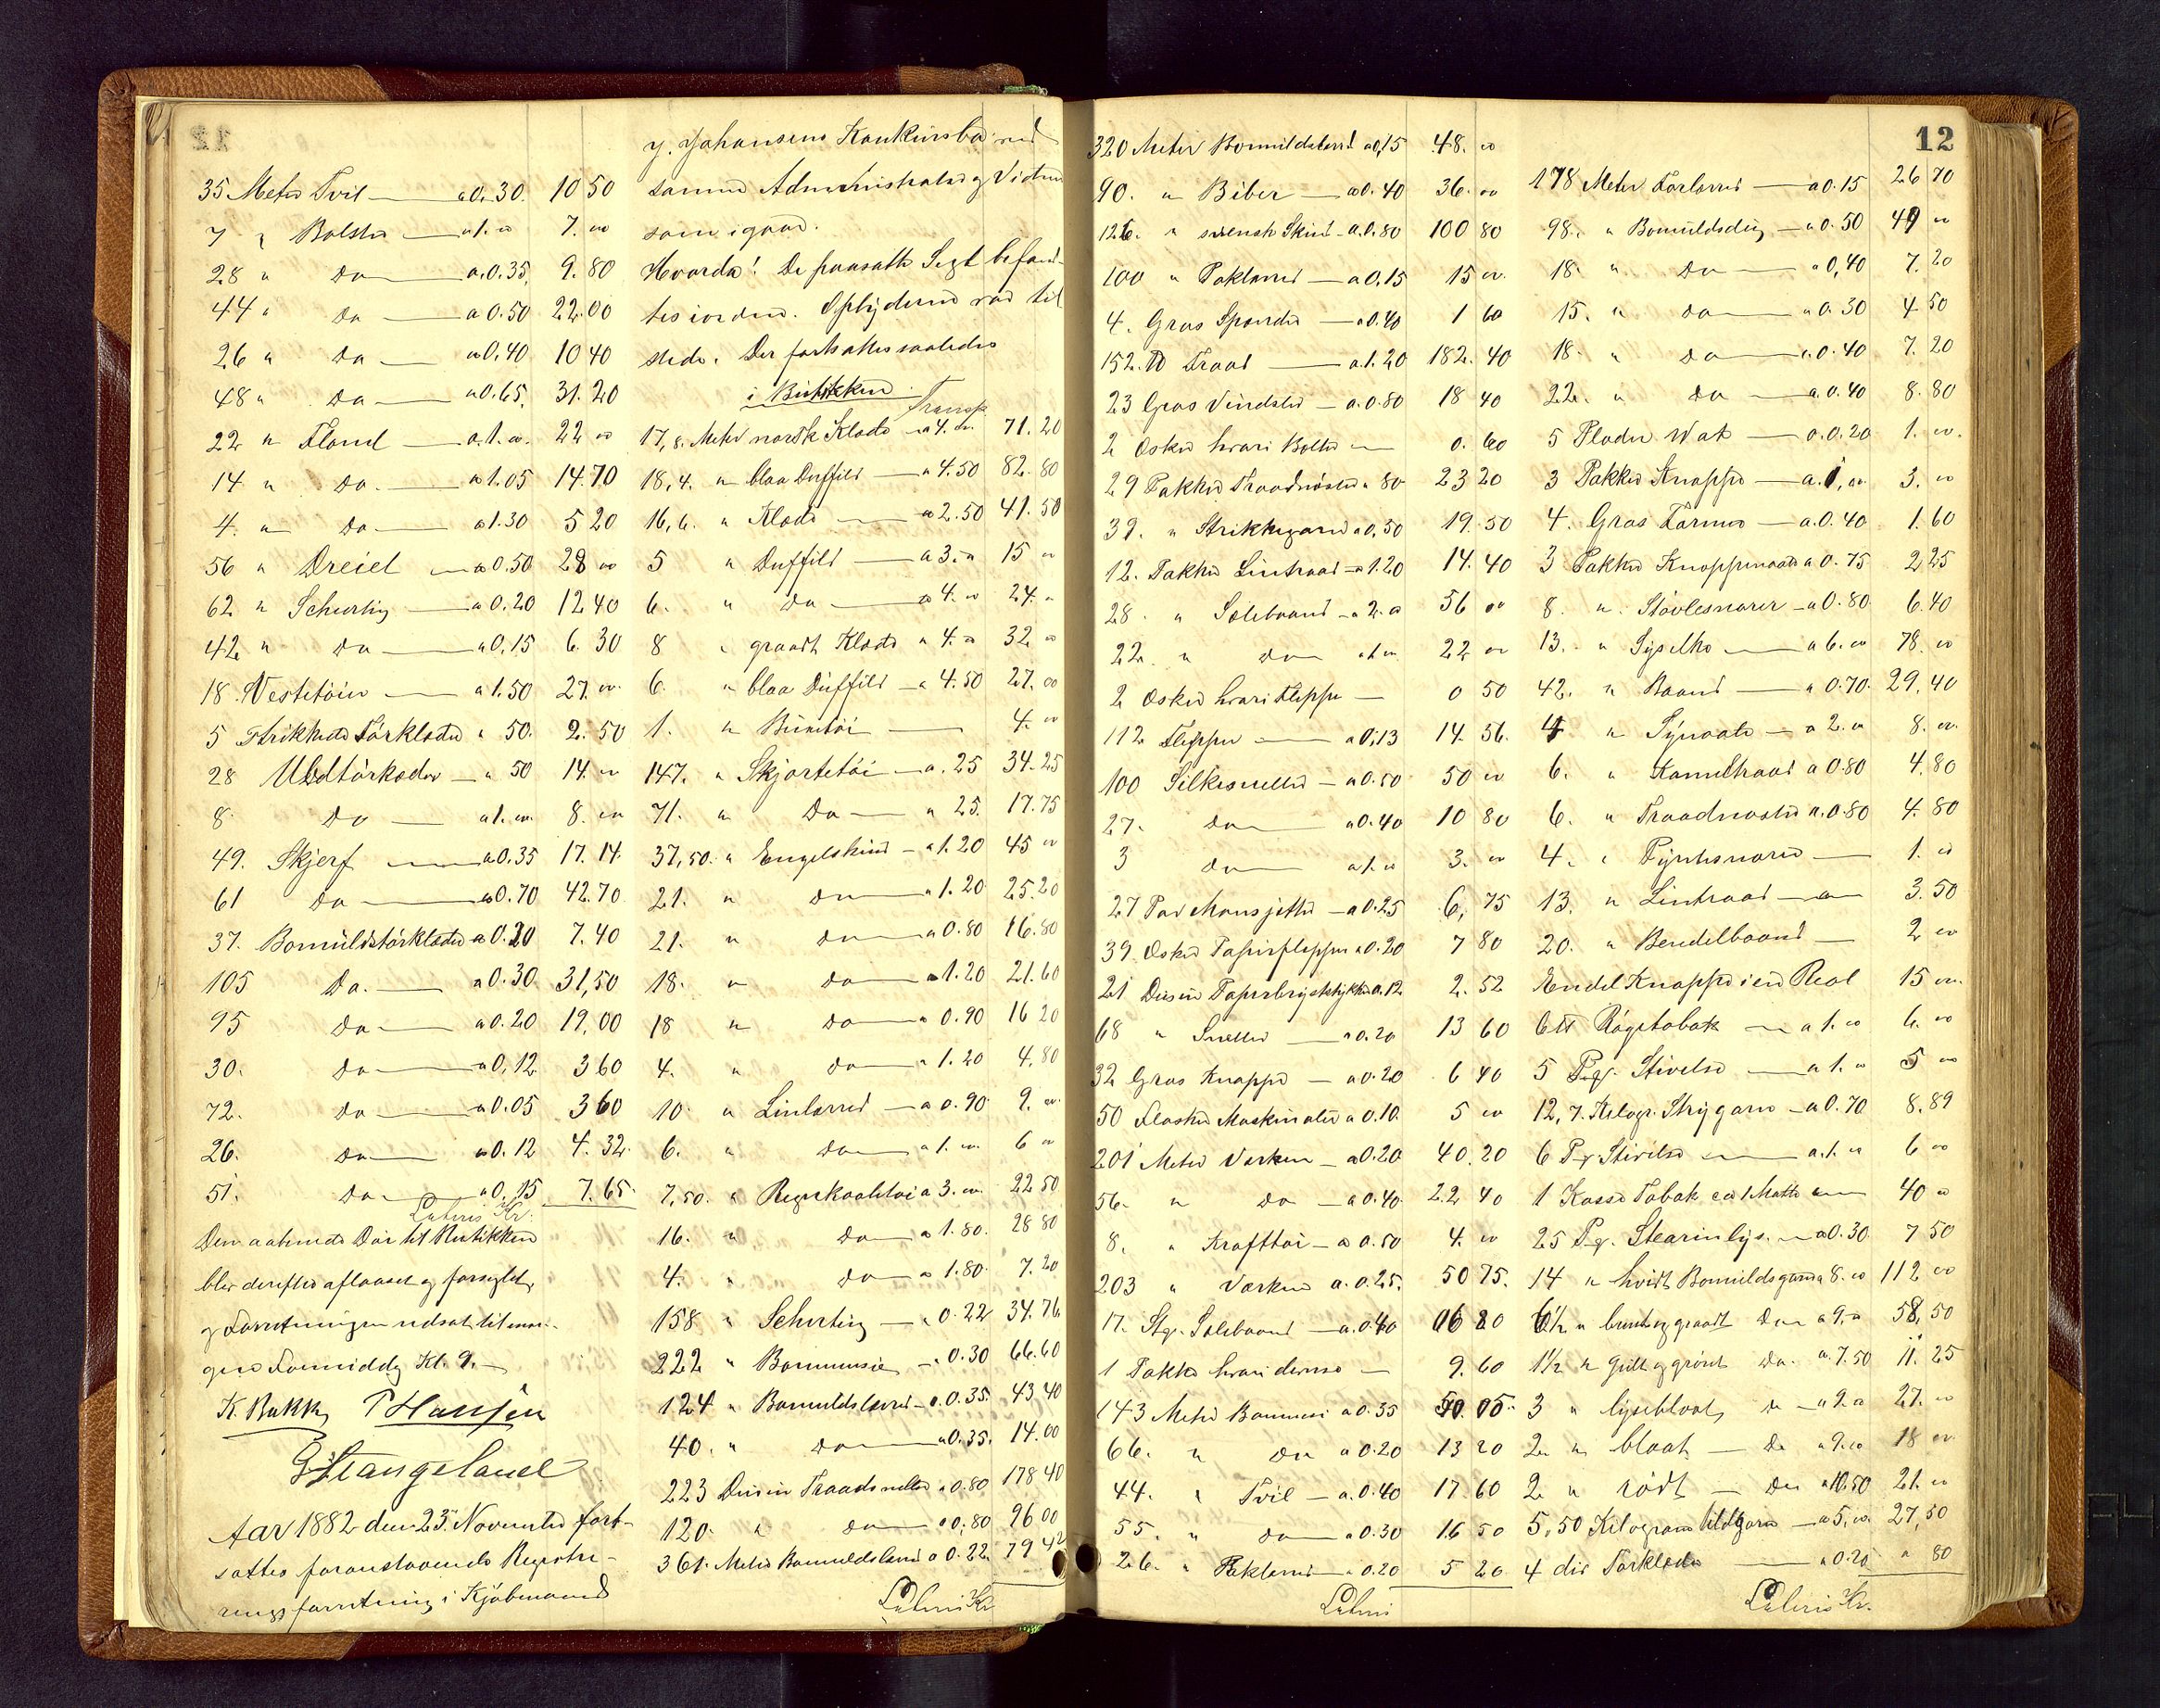 35 Meter Tvil — a 0.30. 10 50
7 " Bolster — a 1. 00 7. 00
28 " Do — a 0.35. 9. 80
44 " Do — a 0.50 22.00
26 " Do — a 0,40 10 40
48 " Do — a 0.65. 31. 20
22 " Flonel — a 1. 00. 22 00
14 " Do. — a 1.05 14.70
4. " Do — a 1.30 5 20
56 " Dreiel — a 0.50 28 00
62 " Schirting — a 0.20 12 40
42 " Do — a 0,15 6. 30
18. Vestetöier — a 1.50 27. 00.
5 strikkede Törklæder a 50. 2. 50
28 Uldtörklæder — a 50 14. 00
8. Do — a 1. 00. 8. 00
49. Skjerf — a 0.35 17. 14.
61 Do — a 0.70 42.70
37. Bomuldstörklæder a 0.20 7.40
105 Do. — a 0.30. 31,50
95 Do — a 0.20 19,00
30. Do — a 0,12. 3 60
72. Do — a 0.05 3 60
26. Do — a 0.12 4. 32.
51. Do — a 0,15 7. 65.
Lateris Kr.
Den aabnede Dör til Butikken
blev derefter aflaaset og forseglet,
og Forretningen udsat til mor-
gen Formiddag Kl. 9. —
K. Bakke P Hansen
G Stangeland
Aar 1882 den 23. November fort-
sattes foranstaaende Registre-
ringsforretning i Kjöbmand
J. Johansens Konkursbo ved
samme Administrator og Vidner
som igaar.
Hvorda! De paasatte Segl befand-
tes iorden. Opbyderen var til
stede. Der fortsattes saaledes
i Butikken.
Transp.
17,8. Meter norsk Klæde a 4. 00. 71. 20
18,4. " blaa Duffild — a 4.50 82. 80
16,6. " Klæde — a 2.50 41. 50
5 " Duffild — a 3. 00 15 00
6. " Do — a 4. 00 24. "
8 " graat Klæde a 4. 00 32 00
6. " blaa Duffild — a 4.50 27. 00
1. " Buxetöi — 4. 00
147. " Skjortetöi — a . 25 34.25
71. " Do — a 25. 17.75
37,50. " Engelskind — a 1.20 45 00
21. " Do — a 1.20 25.20
21. " Do — a 0.80 16.80
18. " Do — a 1.20 21.60
18 " Do — a 0.90 16 20
4. " Do — a 1.20 4.80
10. " Linlærred — a 0.90 9. 00.
6. " Do — a 1. 00. 6 00
7,50. " Regnkaabetöi a 3. 00. 22 50
16. " Do a 1.80. 28 80
4. " Do a 1.80. 7.20
158 " Schirting — a 0.22 34.76
222 " Bommesie — a 0.30 66.60
124 " Bomuldslærred — a 0.35. 43.40
40. " Do — a 0.35. 14.00
223 Dusin Traadsneller a 0.80 178 40
120. " Do a 0,80 96 00
361. Meter Bomuldslærred a 0.22. 79 42
Lateris Kr
12
320 Meter Bomuldslærred a 0,15 48. 00
90. " Biber — a 0.40 36. 00
126. " svensk Skind — a. 0.80 100 80
100 " Paklærred — a 0,15 15 00.
4. Gros Spænder — a 0.40 1 60
152. ℔ Traad — a 1.20 182. 40
23 Gros Vindsler — a. 0.80 18 40
2 Æsker hvari Bolter — 0. 60
29 Pakker Traadnöster a 80 23 20
39. " Strikkegarn a 0,50 19. 50
12. Pakker Lintraad — a 1.20 14. 40
28. " Solebaand — a 2. 00 56 00
22. " Do a 1. 00 22 00
2 Æsker hvari Flipper — 0 50
112 Flipper — a 0,13 14. 56.
100 Silkesneller — a 0.50 50 00
27. Do — a 0.40 10 80
3 Do — a 1. 00 3. 00
27 Par Mansjetter — a 0.25 6, 75
39 Æsker Papirflipper a 0.20 7 80
21 Dusin Papirbrystst ykker a. 12 2. 52
68 " Sneller — a 0.20 13 60
32 Gros Knapper — a 0.20 6 40
50 Flasker Maskinolie a 0.10. 5 00
201 Meter Værken — a 0.20 40. 20
56. " Do — a 0.40. 22 40
8. " Krafttöi — a 0.50 4. 00
203 " Værken a. 0.25. 50 75.
17. Stg. Solebaand — a. 0.40 6 80
1 Pakke hvari diverse — 9. 60
143 Meter Bommesi a 0.35 50. 05.
66. " Do a 0.20 13 20
44. " Tvil — a. 0.40 17. 60
55. " Do — a 0.30 16 50
26. " Paklærred — a 0.20 5 20
Lateris
178 Meter Forlærred — a 0.15 26 70
98. " Bomuldsdug — a 0. 50 49 00
18 " Do — a 0,40 7. 20
15. " Do — a 0. 30 4 50
18. " Do — a. 0.40 7. 20
22. " Do — a. 0.40 8. 80
5 Plader Vat — a. 0.20 1. 00.
3 Pakker Knapper — a. 1, 00. 3. 00
4. Gros — a. 0.40 1. 60
3 Pakker Knappenaale a 0.75 2,25
8. " Stövlesnorer — a 0.80. 6.40
13. " Sysilke — a 6. 00 78. 00
42. " Baand — a 0.70. 29.40
4 " Synaale — a 2. 00 8. 00.
6. " Kameltraad a 0.80 4.80
6. " Traadnöster a. 0.80 4. 80
4. " Pyntesnorer — 1. 00
13. " Lintraad — 3. 50
20. " Bendelbaand — 2 00
Endel Knapper i en Reol 15 00.
6 ℔ Rögetobak — a 1. 00 6. 00
5 Pg. Stivelse — a 1. 00 5 00
12,7. Kilogr. Strygarn — a 0.70 8.89
6 Pg. Stivelse — a. 1. 00 6 00
1 Kasse Tobak ca 1 Matte — 40 00
25 Pg. Stearinlys. — a 0.30 7 50
14 " hvidt Bomuldsgarn a 8. 00 112 00
6½ " brunt og graat Do a 9. 00 58,50
1½ " gult og grönt Do. a. 7.50 11. 25
3 " lyseblaat Do — a 9. 00 27. 00
2 " blaat — Do a 9. 00 18 00
2 " rödt — Do a 10.50 21. 00
5,50 Kilogram Uldgarn — a 5, 00. 27,50
4 div Törklæder — a 0.20 " 80
Lateris Kr.